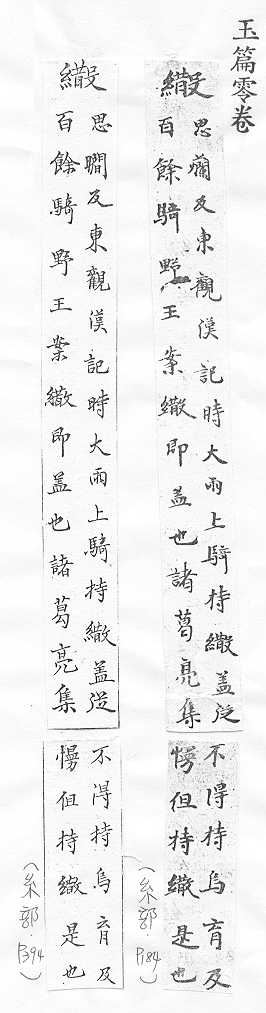 玉篇零卷
繖
思爛及東觀漢記時大雨上騎持繖盖從
百餘騎野王案繖即盖也諸葛亮集
不得持烏育及
幔但持繖是也
(糸部 P184)
繖
思瞯及東觀漢記時大雨上騎持繖盖從
百餘騎野王案繖即盖也諸葛亮集
不得持烏育及
幔但持繖是也
(糸部 P394)